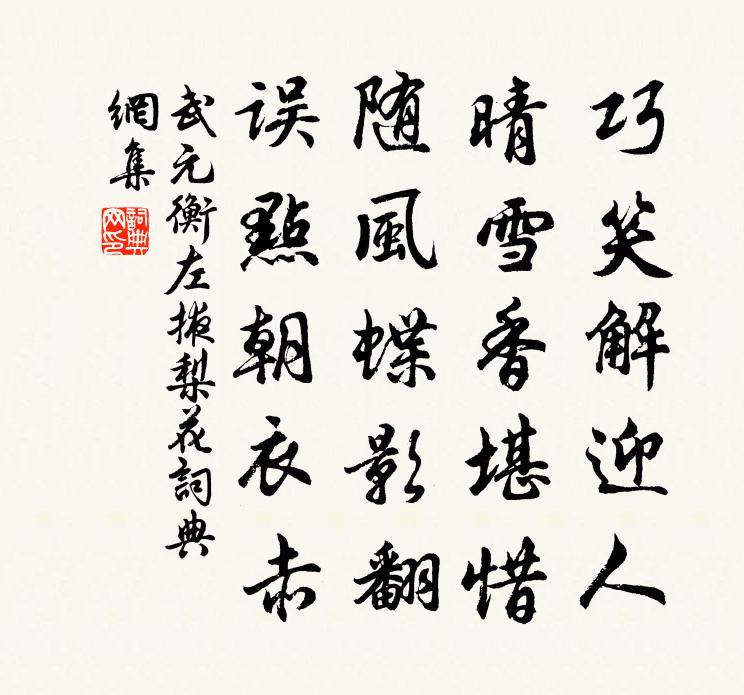 巧笑解迎人
晴雪香堪惜
随風蝶影翻
误點朝衣赤
武元衡左掖梨花詞典
網集
詞典
网印